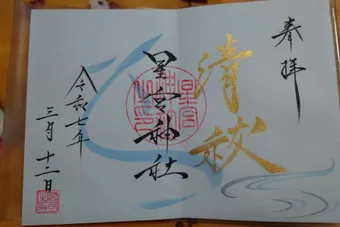 奉拝
清祓
星宮神社
令和七年
三月十二日